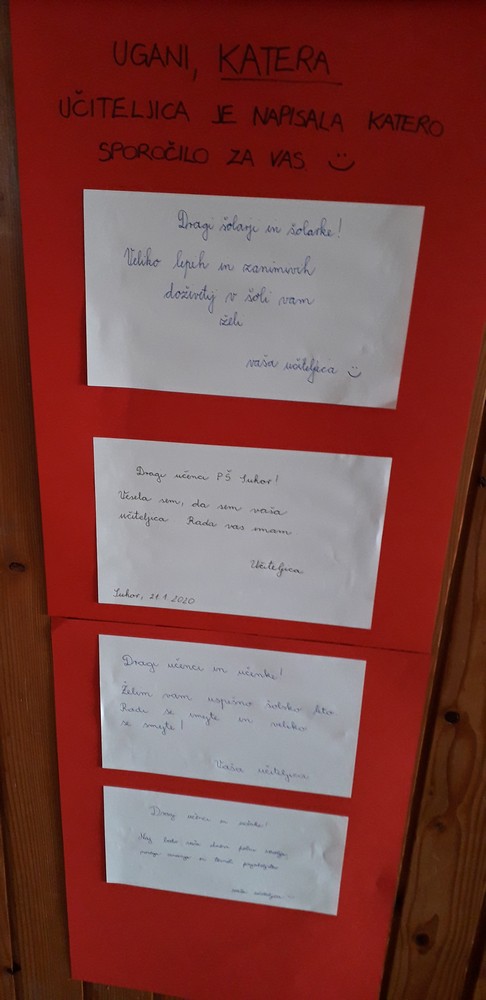 UGANI, KATERA
UČITELJICA JE NAPISALA KATERO
SPOROČILO ZA VAS
Dragi šolarji in šolarke!
Veliko lepih in zanimivih
doživetij v šoli vam
želi
vaša učiteljica
Dragi učenci PŠ Suhor!
Vesela sem, da sem vaša
učiteljica. Rada vas imam
Učiteljica
Suhor, 21.1.2020
Dragi učenci in učenke!
Želim vam uspešno šolsko leto
Radi se imejte in veliko
se smejte!
Vaša učiteljica
Dragi učenci in učenke!
Naj bodo vaši dnevi polni veselja,
novega znanja in
vaša učiteljica